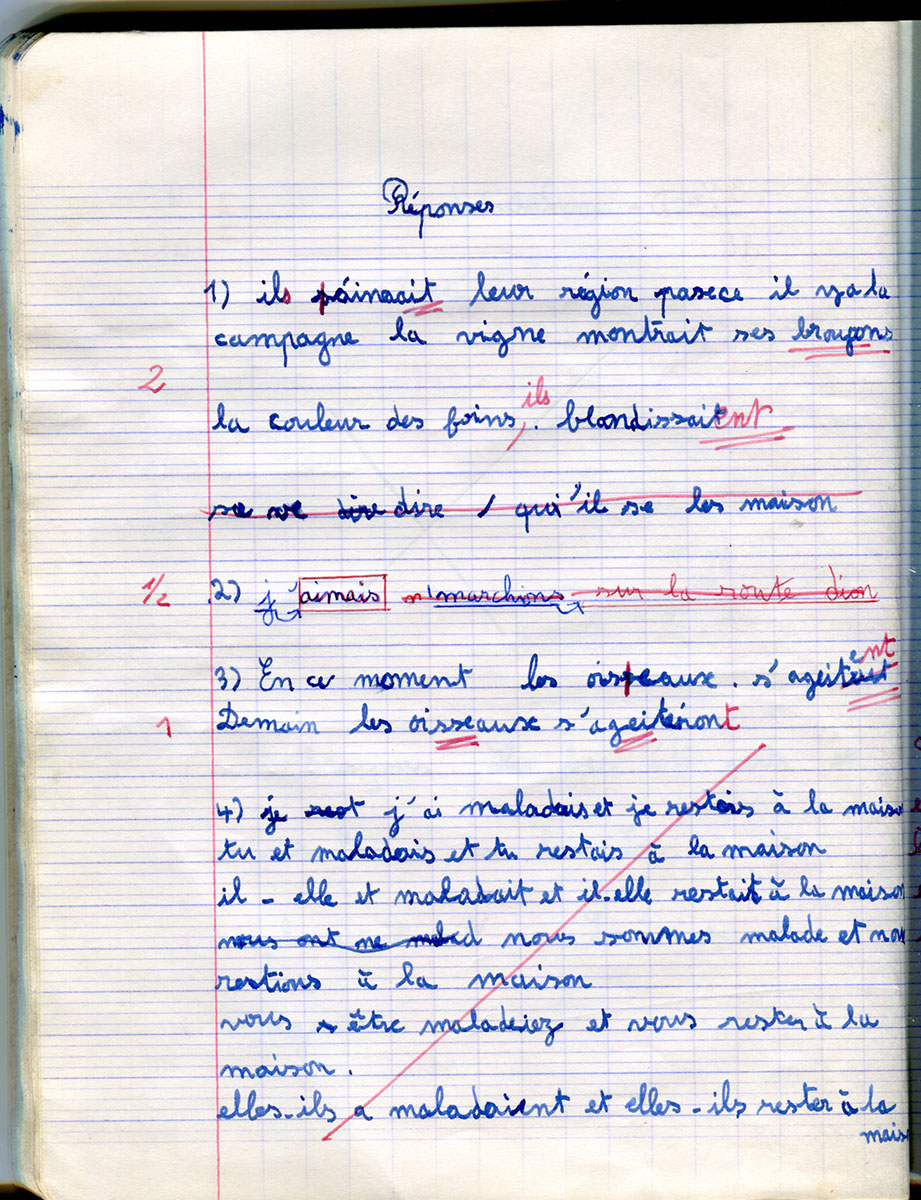 Réponses
1) ils páinsait leur région pasece il y a la
campagne la vigne montrait ses brougons
2
ils
la couleur des foins, . blondissaitent
se ve dire dire / qui'il se les maison
1/2 2) j'aimais n'marchions sur la route dion
3) En ce moment les oisseaux . s'ageitent
1 Demain les oisseaux s'ageitéront
4) je j'ai maladais et je restais à la maiso
tu et maladais et tu restais à la maison
il - elle et maladait et il-elle restait à la maison
nous ont me malad nous sommes malade et nou
restions à la maison
vous être maladeiez et vous rester à la
maison.
elles-ils a maladaient et elles-ils rester à la
mais